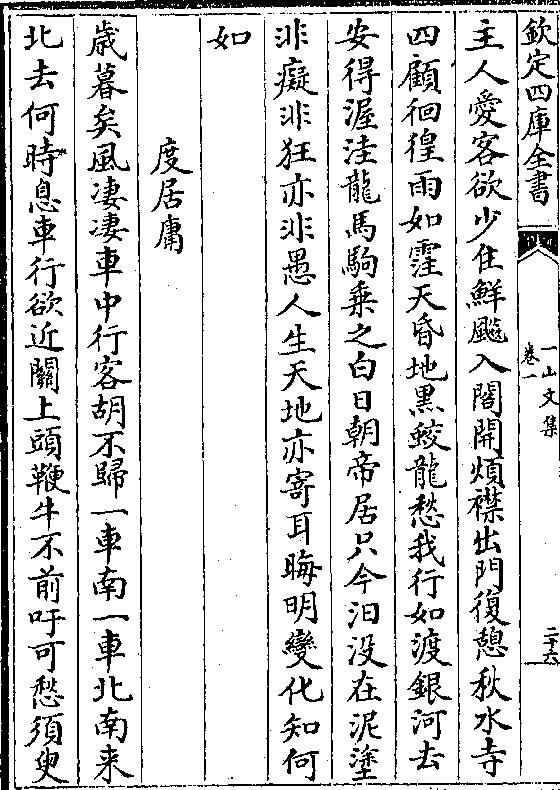 欽定四庫全書
一山文集
卷一
二十六
主人愛客欲少住鮮飈入閣開煩襟出門復憩秋水寺
四顧徊徨雨如霔天昏地黒蛟龍愁我行如渡銀河去
安得渥洼龍馬駒乗之白日朝帝居只今汨没在泥塗
非癡非狂亦非愚人生天地亦寄耳晦明變化知何
如
度居庸
歳暮矣風凄凄車中行客胡不歸一車南一車北南来
北去何時息車行欲近關上頭鞭牛不前吁可愁須臾